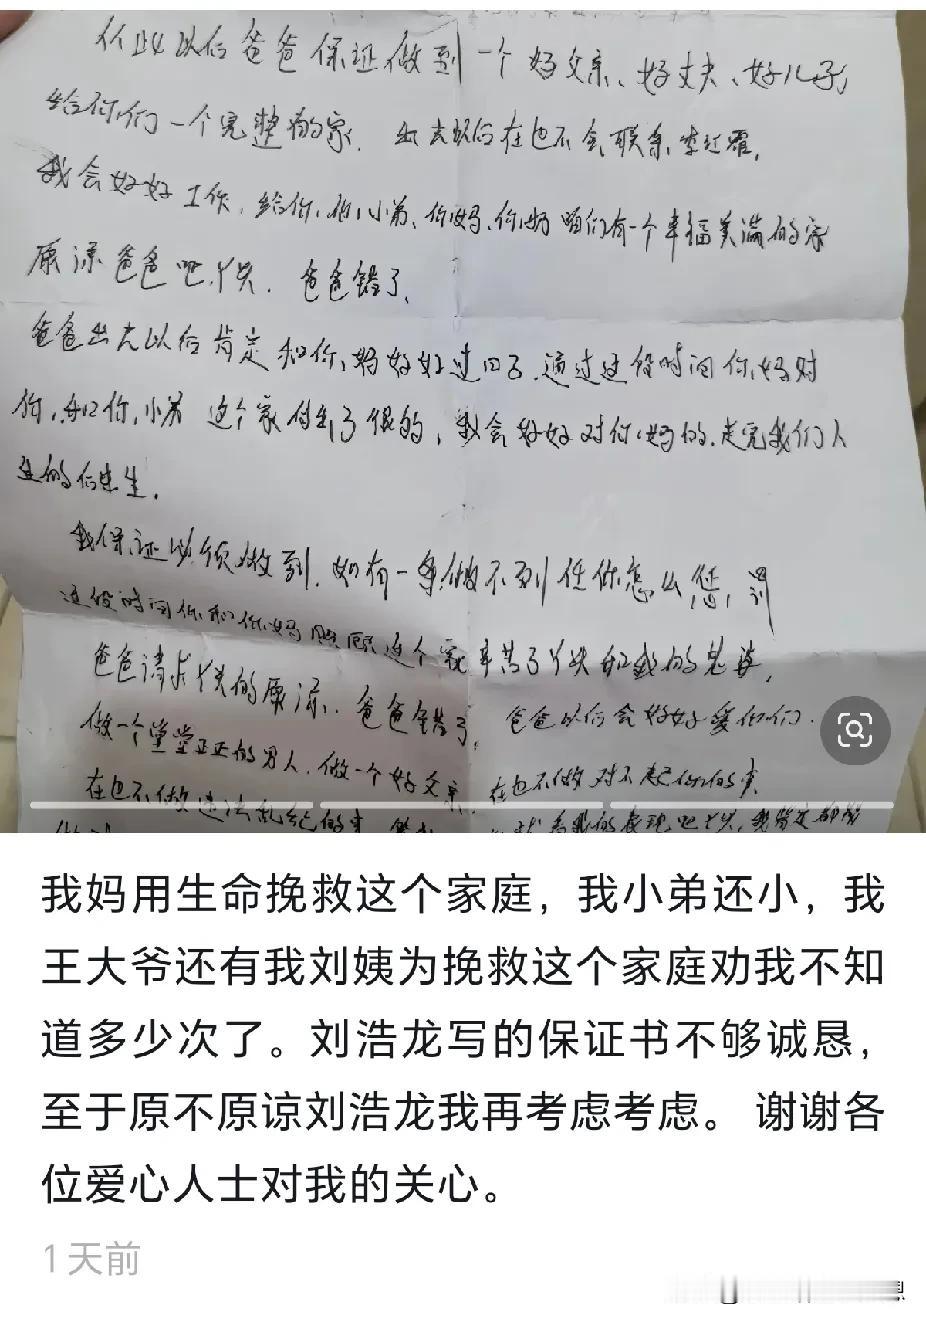 从此以后爸爸保证做到一个好父亲、好丈夫、好儿子,
给你们一个完整的家. 出去以后在也不会联系李红霞.
我会好好工作. 给你.和小弟、你妈、你奶咱们有一个幸福美满的家
原谅爸爸吧.丫头. 爸爸错了.
爸爸出去以后肯定和你.妈好好过日子.通过这段时间你.妈对
你.和你.小弟 这个家付出了很的, 我会好好对你.妈的.走完我们人
生的后半生.
我保证必须做到. 如有一条做不到任你怎么惩.罚
这段时间你和你.妈照顾这个家辛苦了丫头和我的老婆.
爸爸请求丫头的原谅. 爸爸错了. 爸爸以后会好好爱你们.
做一个堂堂正正的男人.做一个好父亲. 在也不做对不起你们的事
在也不做违法乱纪的事 我的表现吧丫头.我肯定
我妈用生命挽救这个家庭，我小弟还小，我
王大爷还有我刘姨为挽救这个家庭劝我不知
道多少次了。刘浩龙写的保证书不够诚恳，
至于原不原谅刘浩龙我再考虑考虑。 谢谢各
位爱心人士对我的关心。
1天前